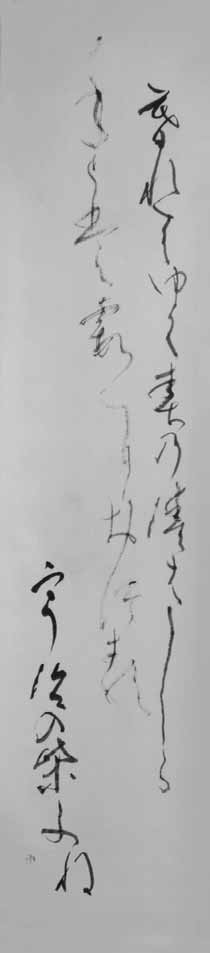 暮れてゆく春乃湊はしら
ねとも霞におつる
宇治の柴ふね